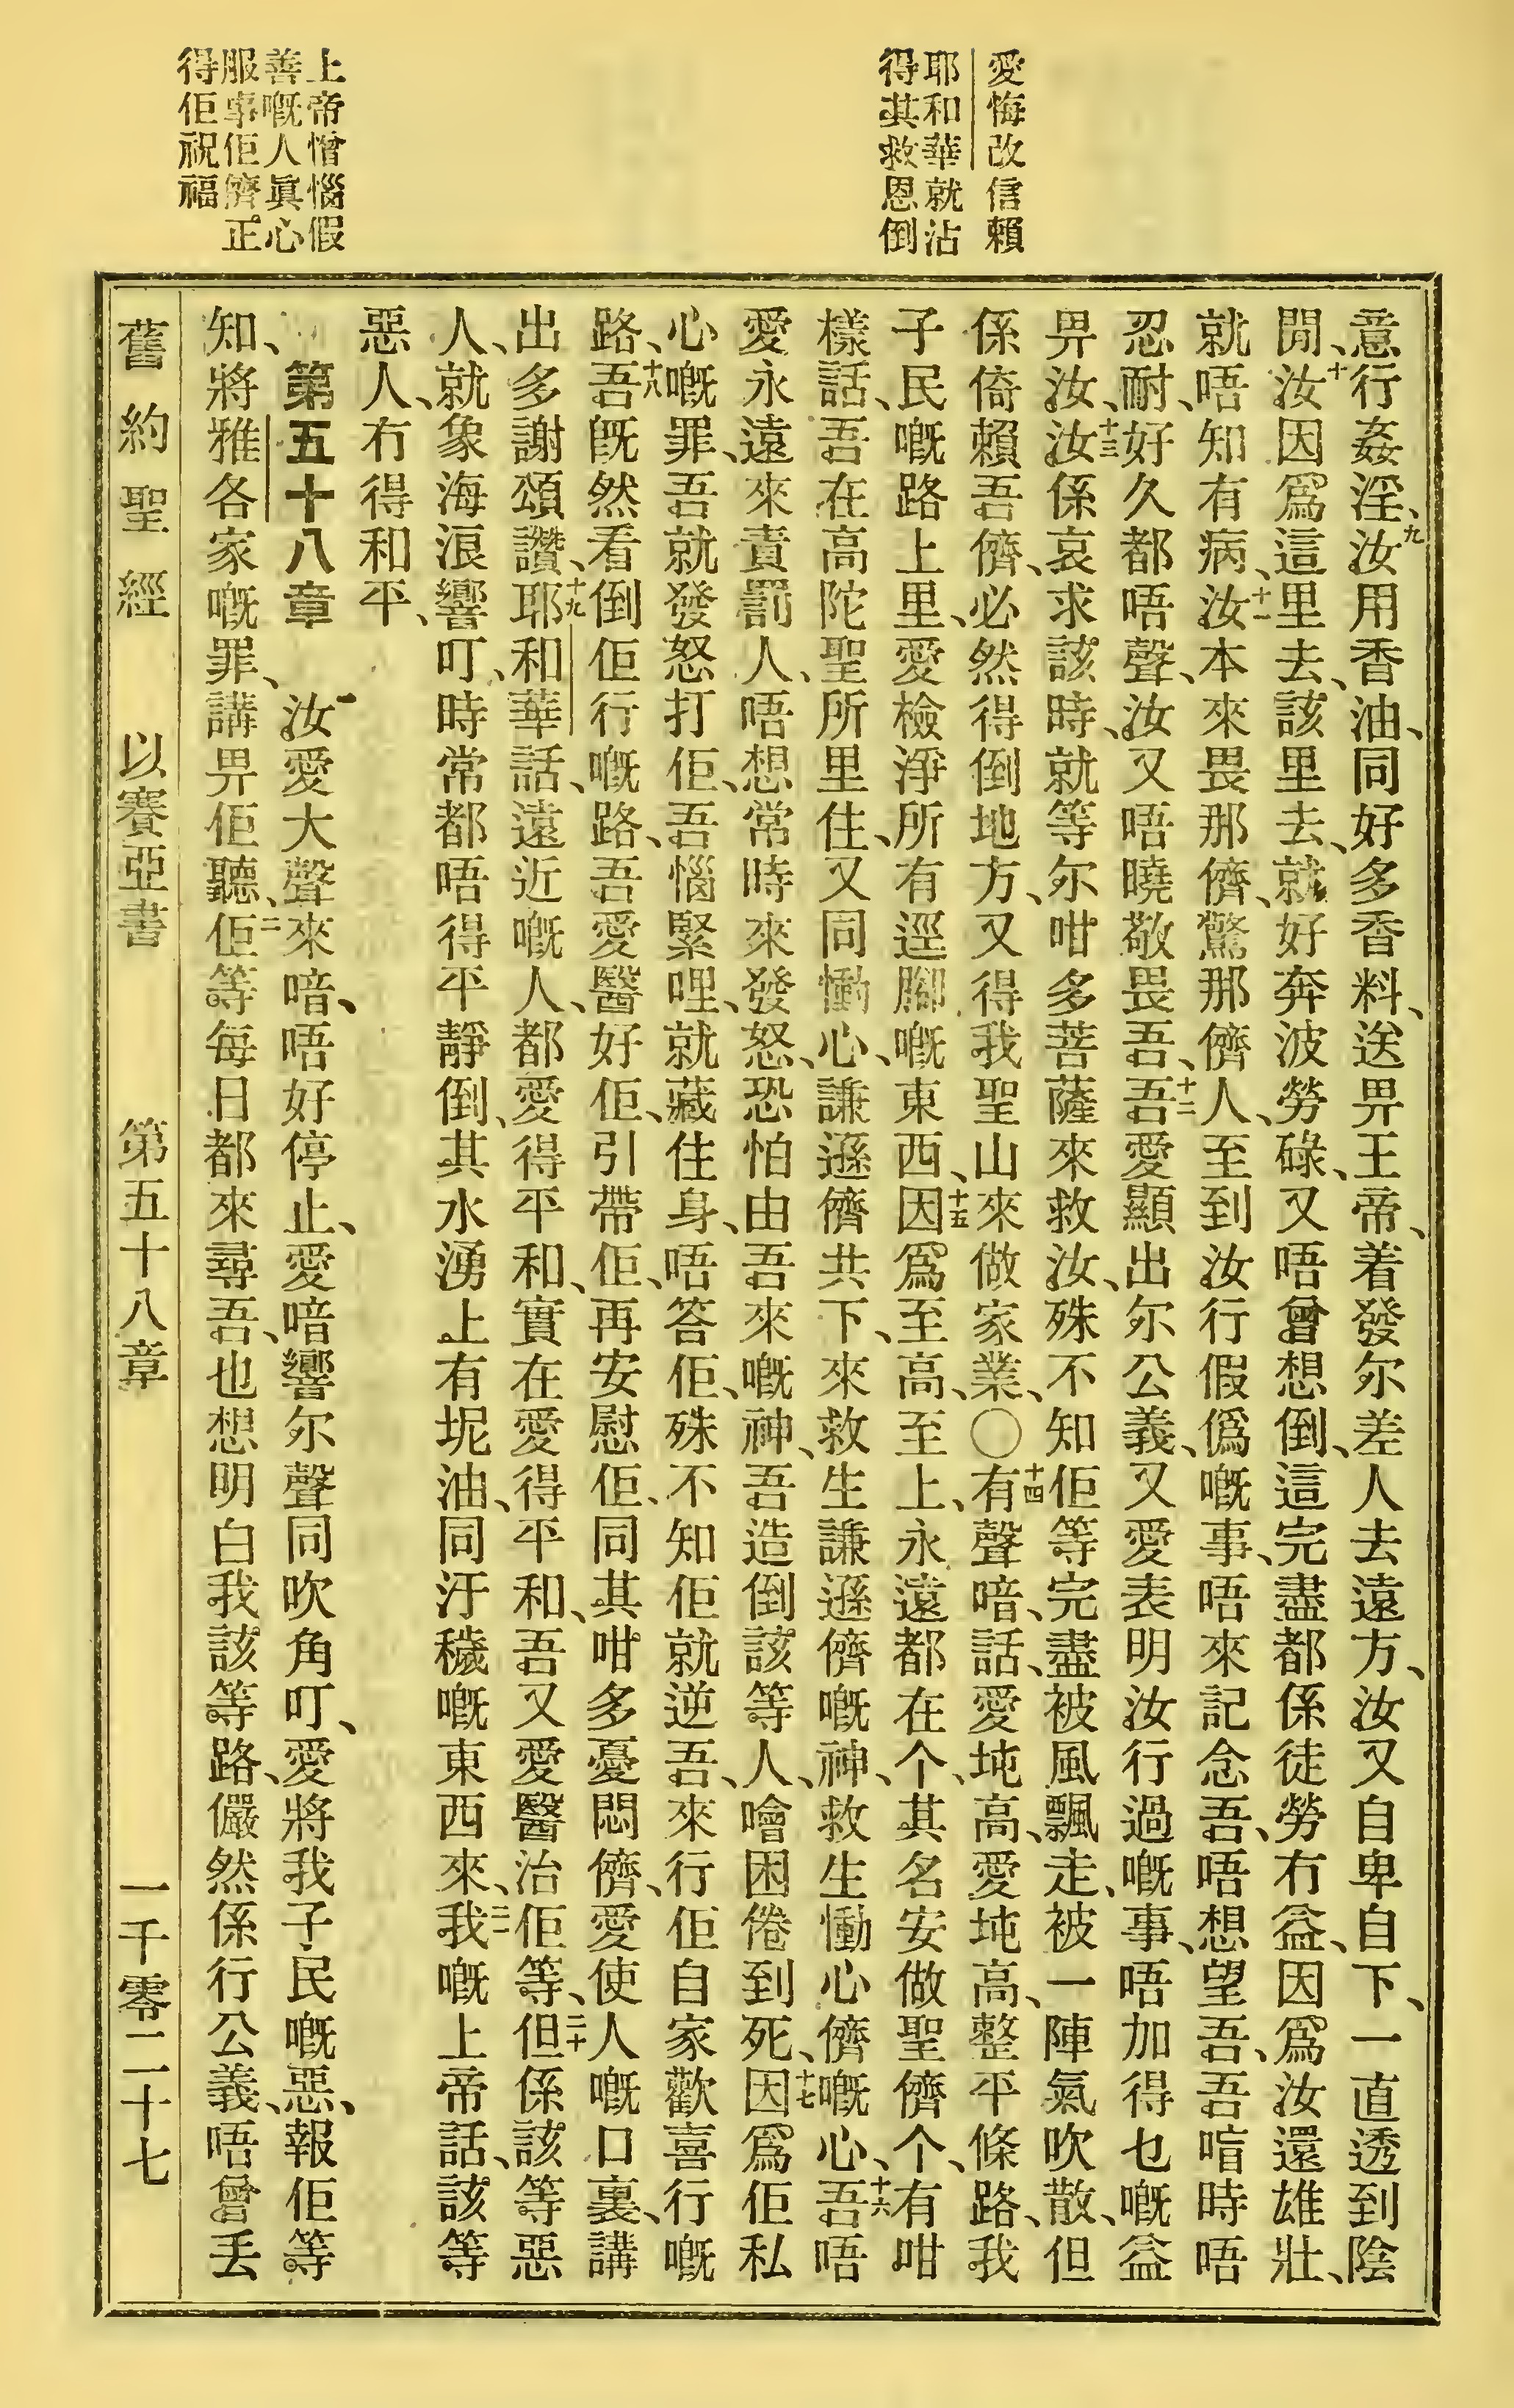 愛悔改信賴
耶和華就沾
得其救恩倒
上帝憎惱假
善嘅人眞心
服事佢儕正
得佢祝福
意行姦淫、九汝用香油、同好多香料、送畀王帝、着發尔差人去遠方、汝又自卑自下、一直透到陰
間、十汝因爲這里去、該里去、就好奔波勞碌、又唔曾想倒、這完盡都係徒勞冇益、因爲汝還雄壯、
就唔知有病、十一汝本來畏那儕、驚那儕人、至到汝行假僞嘅事、唔來記念吾、唔想望吾、吾喑時唔
忍耐、好久都唔聲、汝又唔曉敬畏吾、十二吾愛顯出尔公義、又愛表明汝行過嘅事、唔加得乜嘅益
畀汝、十三汝係哀求該時、就等尔咁多菩薩來救汝、殊不知佢等完盡被風飄走、被一陣氣吹散、但
係倚賴吾儕、必然得倒地方、又得我聖山來做家業、〇十四有聲喑、話、愛坉高、愛坉高、整平條路、我
子民嘅路上里、愛檢淨所有逕腳嘅東西、十五因爲至高、至上、永遠都在个、其名安做聖儕个、有咁
樣話、吾在高陀聖所里住、又同慟心、謙遜儕共下、來救生謙遜儕嘅神、救生慟心儕嘅心、十六吾唔
愛永遠來責罰人、唔想常時來發怒、恐怕由吾來嘅神、吾造倒該等人、噲困倦到死、十七因爲佢私
心嘅罪、吾就發怒打佢、吾惱緊哩、就藏住身、唔答佢、殊不知佢就逆吾、來行佢自家歡喜行嘅
路、十八吾旣然看倒佢行嘅路、吾愛醫好佢、引帶佢、再安慰佢、同其咁多憂悶儕、愛使人嘅口裏、講
出多謝頌讚、十九耶和華話、遠近嘅人、都愛得平和、實在愛得平和、吾又愛醫治佢等、二十但係該等惡
人、就象海浪響叮、時常都唔得平靜倒、其水湧上有坭油、同汙穢嘅東西來、二一我嘅上帝話、該等
惡人、冇得和平、
第五十八章　一汝愛大聲來喑、唔好停止、愛喑響尔聲同吹角叮、愛將我子民嘅惡、報佢等
知、將雅各家嘅罪、講畀佢聽、二佢等每日都來尋吾、也想明白我該等路、儼然係行公義、唔曾丟
舊約聖經　以賽亞書　第五十八章　一千零二十七